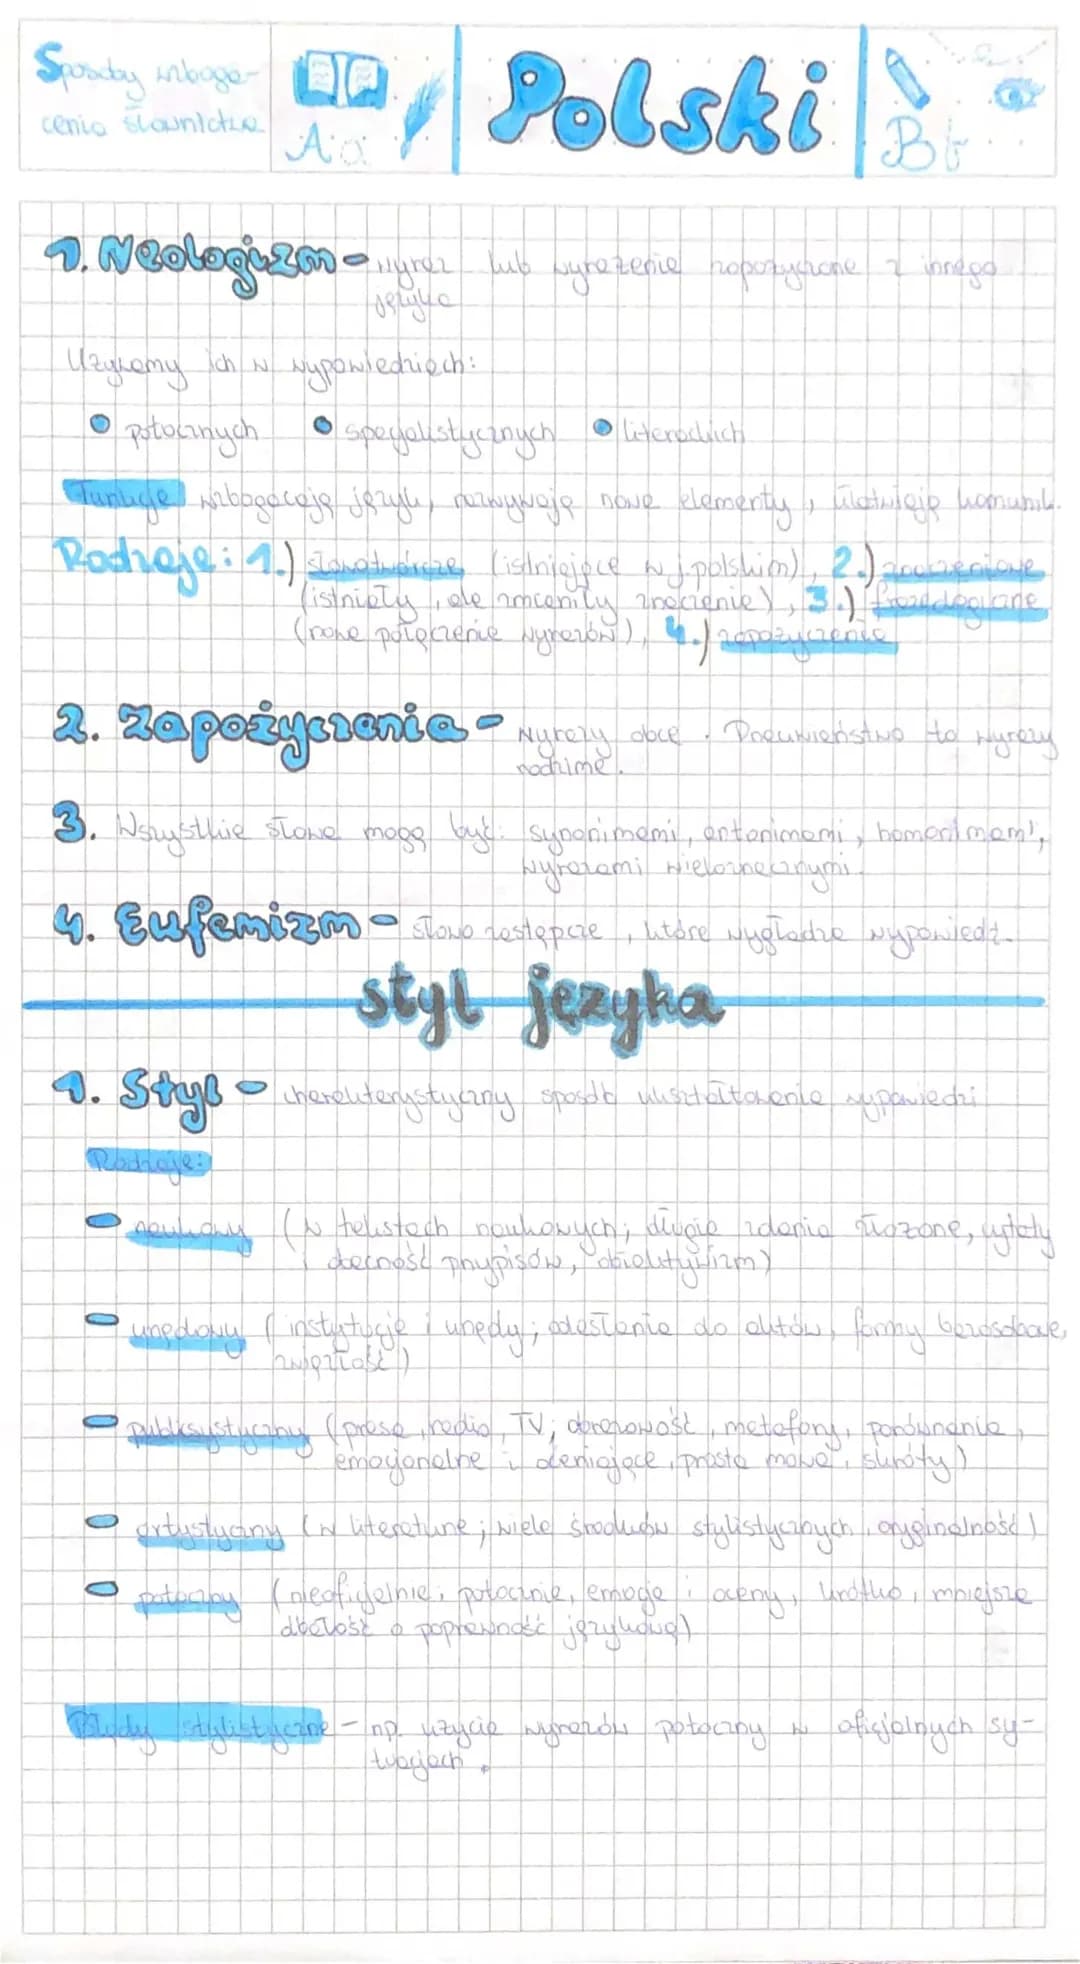 Sposoby wzboga-
cenia słownictwa
Aa
Polski
Bb
1. Neologizm - wyraz lub wyrażenie zapożyczone z innego
języka
Używamy ich w wypowiedziach:
potocznych specjalistycznych literackich
Funkcje wzbogacają język, nazywają nowe elementy, ułatwiają komunik.
Rodzaje: 1.) słowotwórcze (istniejące w j.polskim), 2.) znaczeniowe
(istniały, ale zmieniły znaczenie), 3.) frazeologiczne
(nowe połączenie wyrazów), 4.) zapożyczenie
2. Zapożyczenia - wyrazy obce. Przeciwieństwo to wyrazy
rodzime.
3. Wszystkie słowa mogą być: synonimami, antonimami, homonimami,
wyrazami wieloznacznymi.
4. Eufemizm - słowo zastępcze, które wygładza wypowiedź.
styl języka
1. Styl - charakterystyczny sposób ukształtowania wypowiedzi
Rodzaje:
naukowy (w tekstach naukowych; długie zdania złożone, cytaty
i obecność przypisów, obiektywizm)
urzędowy (instytucje i urzędy; odesłanie do aktów, formy bezosobowe,
zwięzłość)
publicystyczny (prasa, radio, TV; obrazowość, metafory, porównania,
emocjonalne i oceniające, prosta mowa, skróty)
artystyczny (w literaturze; wiele środków stylistycznych, oryginalność)
potoczny (nieoficjalnie; potocznie, emocje i oceny, krótko, mniejsze
dbałość o poprawność językową)
Błędy stylistyczne - np. użycie wyrazów potoczny w oficjalnych sy-
tuacjach.